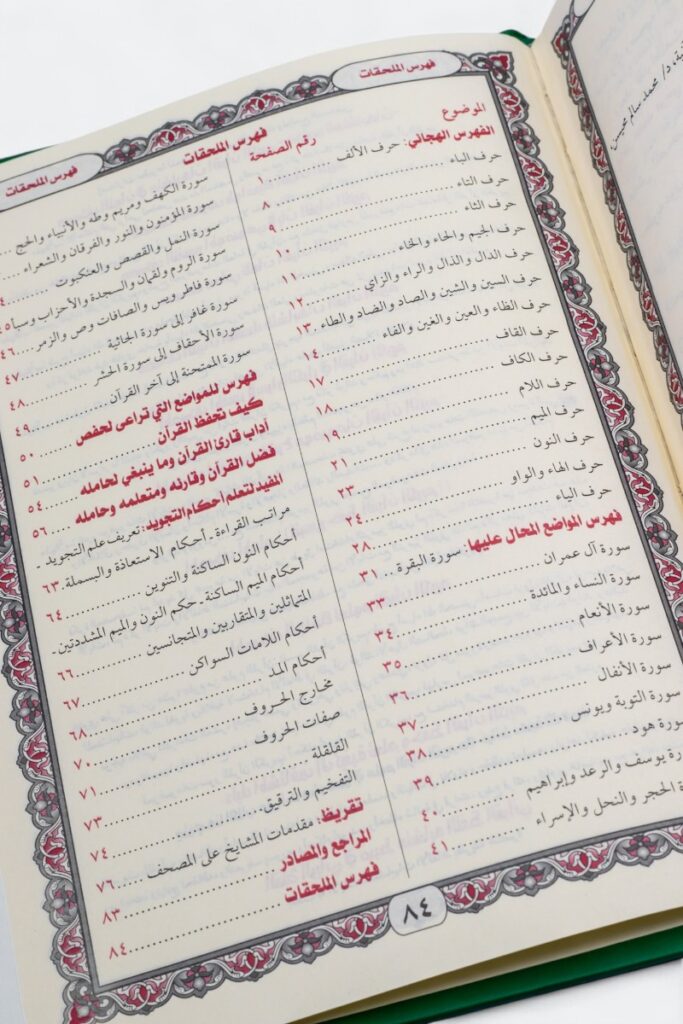 فهرس الملحقات
فهرس الملحقات
فهرس الملحقات
الموضوع رقم الصفحة
الفهرس الهجائي: حرف الألف ........ ١
حرف الباء ........ ٨
حرف التاء ........ ٩
حرف الثاء ........ ١٠
حرف الجيم والحاء والخاء ........ ١١
حرف الدال والذال والراء والزاي ........ ١٢
حرف السين والشين والصاد والضاد والطاء . ١٣
حرف الظاء والعين والغين والفاء ........ ١٤
حرف القاف ........ ١٧
حرف الكاف ........ ١٨
حرف اللام ........ ١٩
حرف الميم ........ ٢١
حرف النون ........ ٢٣
حرف الهاء والواو ........ ٢٤
حرف الياء ........ ٢٨
فهرس المواضع المحال عليها: سورة البقرة ... ٣١
سورة آل عمران ........ ٣٣
سورة النساء والمائدة ........ ٣٤
سورة الأنعام ........ ٣٥
سورة الأعراف ........ ٣٦
سورة الأنفال ........ ٣٧
سورة التوبة ويونس ........ ٣٨
سورة هود ........ ٣٩
يوسف والرعد وإبراهيم ........ ٤٠
الحجر والنحل والإسراء ........ ٤١
سورة الكهف ومريم وطه والأنبياء والحج ...
سورة المؤمنون والنور والفرقان والشعراء ...
سورة النمل والقصص والعنكبوت ........
سورة الروم ولقمان والسجدة والأحزاب وسبأ ٤٥
سورة فاطر ويس والصافات وص والزمر ... ٤٦
سورة غافر إلى سورة الجاثية ........ ٤٧
سورة الأحقاف إلى سورة الحشر ........ ٤٨
سورة الممتحنة إلى آخر القرآن ........ ٤٩
فهرس للمواضع التي تراعى لحفص ... ٥٠
كيف تحفظ القرآن ........ ٥١
آداب قارئ القرآن وما ينبغي لحامله ... ٥٤
فضل القرآن وقارئه ومتعلمه وحامله ... ٥٦
المفيد لتعلم أحكام التجويد: تعريف علم التجويد -
مراتب القراءة - أحكام الاستعاذة والبسملة . ٦٣
أحكام النون الساكنة والتنوين ........ ٦٤
أحكام الميم الساكنة - حكم النون والميم المشددتين -
المتماثلين والمتقاربين والمتجانسين ........ ٦٦
أحكام اللامات السواكن ........ ٦٧
أحكام المد ........ ٦٨
مخارج الحروف ........ ٧٠
صفات الحروف ........ ٧١
القلقلة ........ ٧٣
التفخيم والترقيق ........ ٧٤
تقريظ: مقدمات المشايخ على المصحف ... ٧٦
المراجع والمصادر ........ ٨٣
فهرس الملحقات ........ ٨٤
٨٤
د/ محمد سالم محيسن